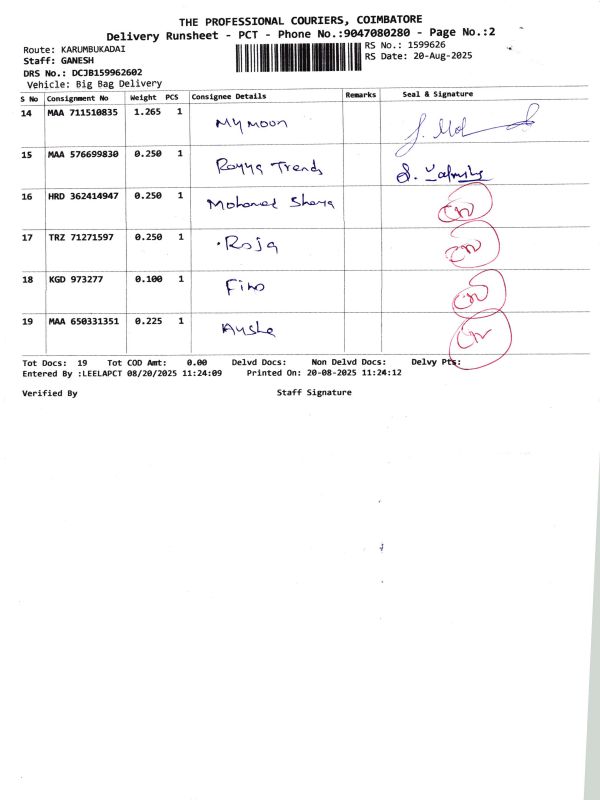 THE PROFESSIONAL COURIERS, COIMBATORE
Delivery Runsheet - PCT - Phone No.:9047080280 - Page No.:2
Route: KARUMBUKADAI
RS No.: 1599626
Staff: GANESH
RS Date: 20-Aug-2025
DRS No.: DCJB159962602
Vehicle: Big Bag Delivery
S No Consignment No Weight PCS Consignee Details Remarks Seal & Signature
14 MAA 711510835 1.265 1 Mymoon
15 MAA 576699830 0.250 1 Rayya Trends
16 HRD 362414947 0.250 1 Mohamed
17 TRZ 71271597 0.250 1 Roja
18 KGD 973277 0.100 1
19 MAA 650331351 0.225 1 Aysha
Tot Docs: 19 Tot COD Amt: 0.00 Delvd Docs: Non Delvd Docs: Delvy Pts:
Entered By :LEELAPCT 08/20/2025 11:24:09 Printed On: 20-08-2025 11:24:12
Verified By Staff Signature